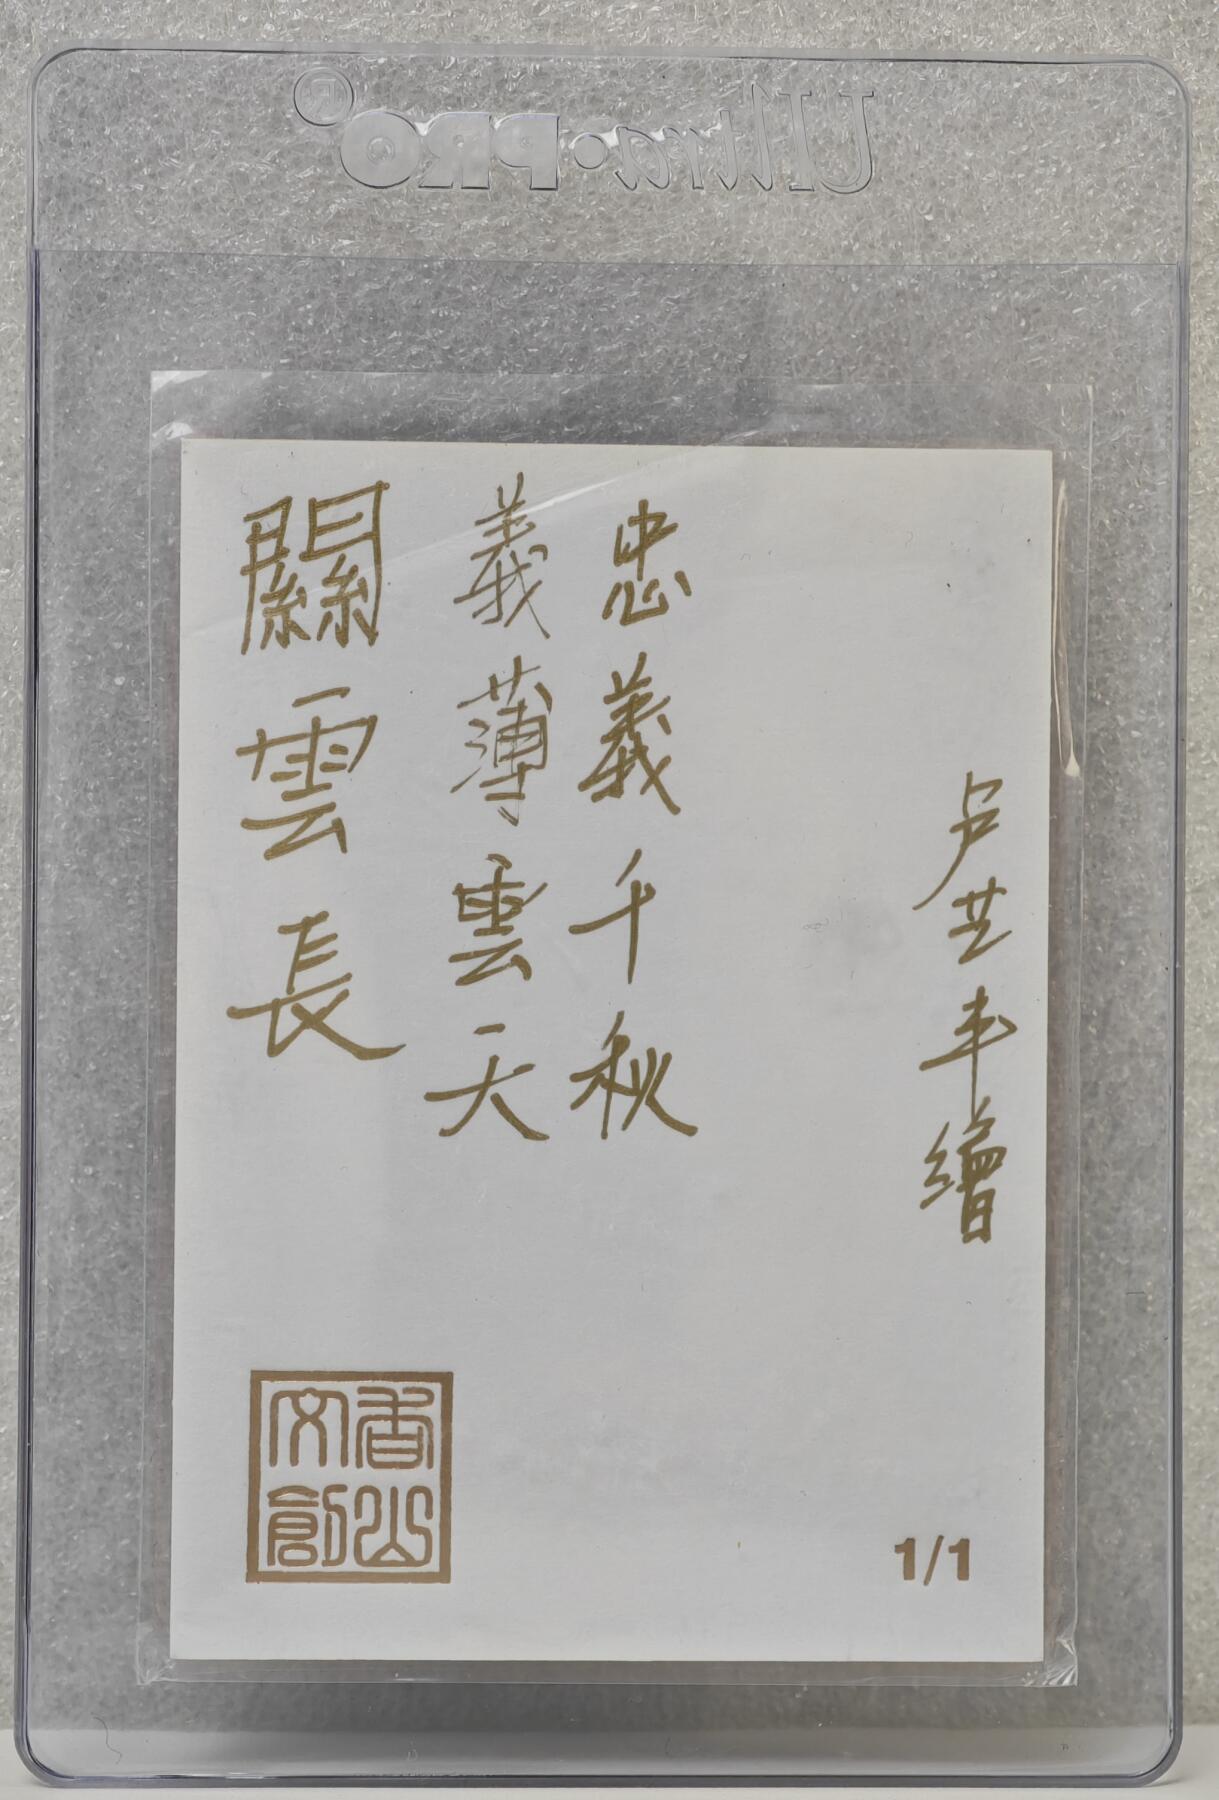 Ultra·PRO®
卢世丰繪
忠義千秋
義薄雲天
關雲長
香山文創
1/1